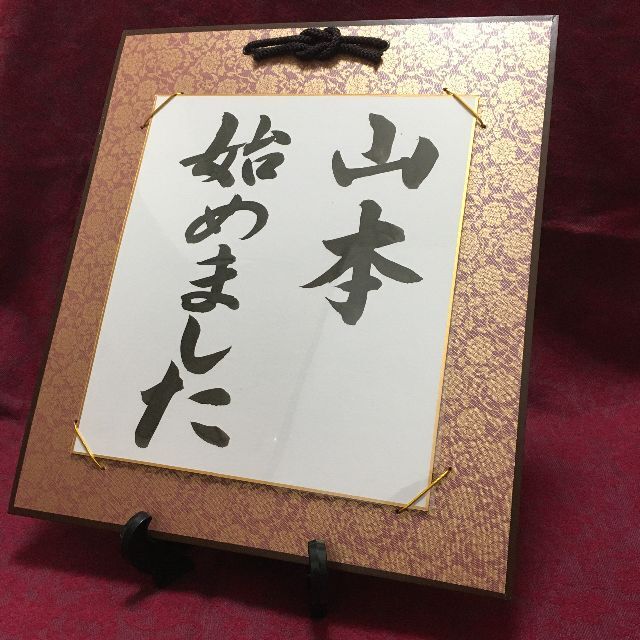 山本
始めました